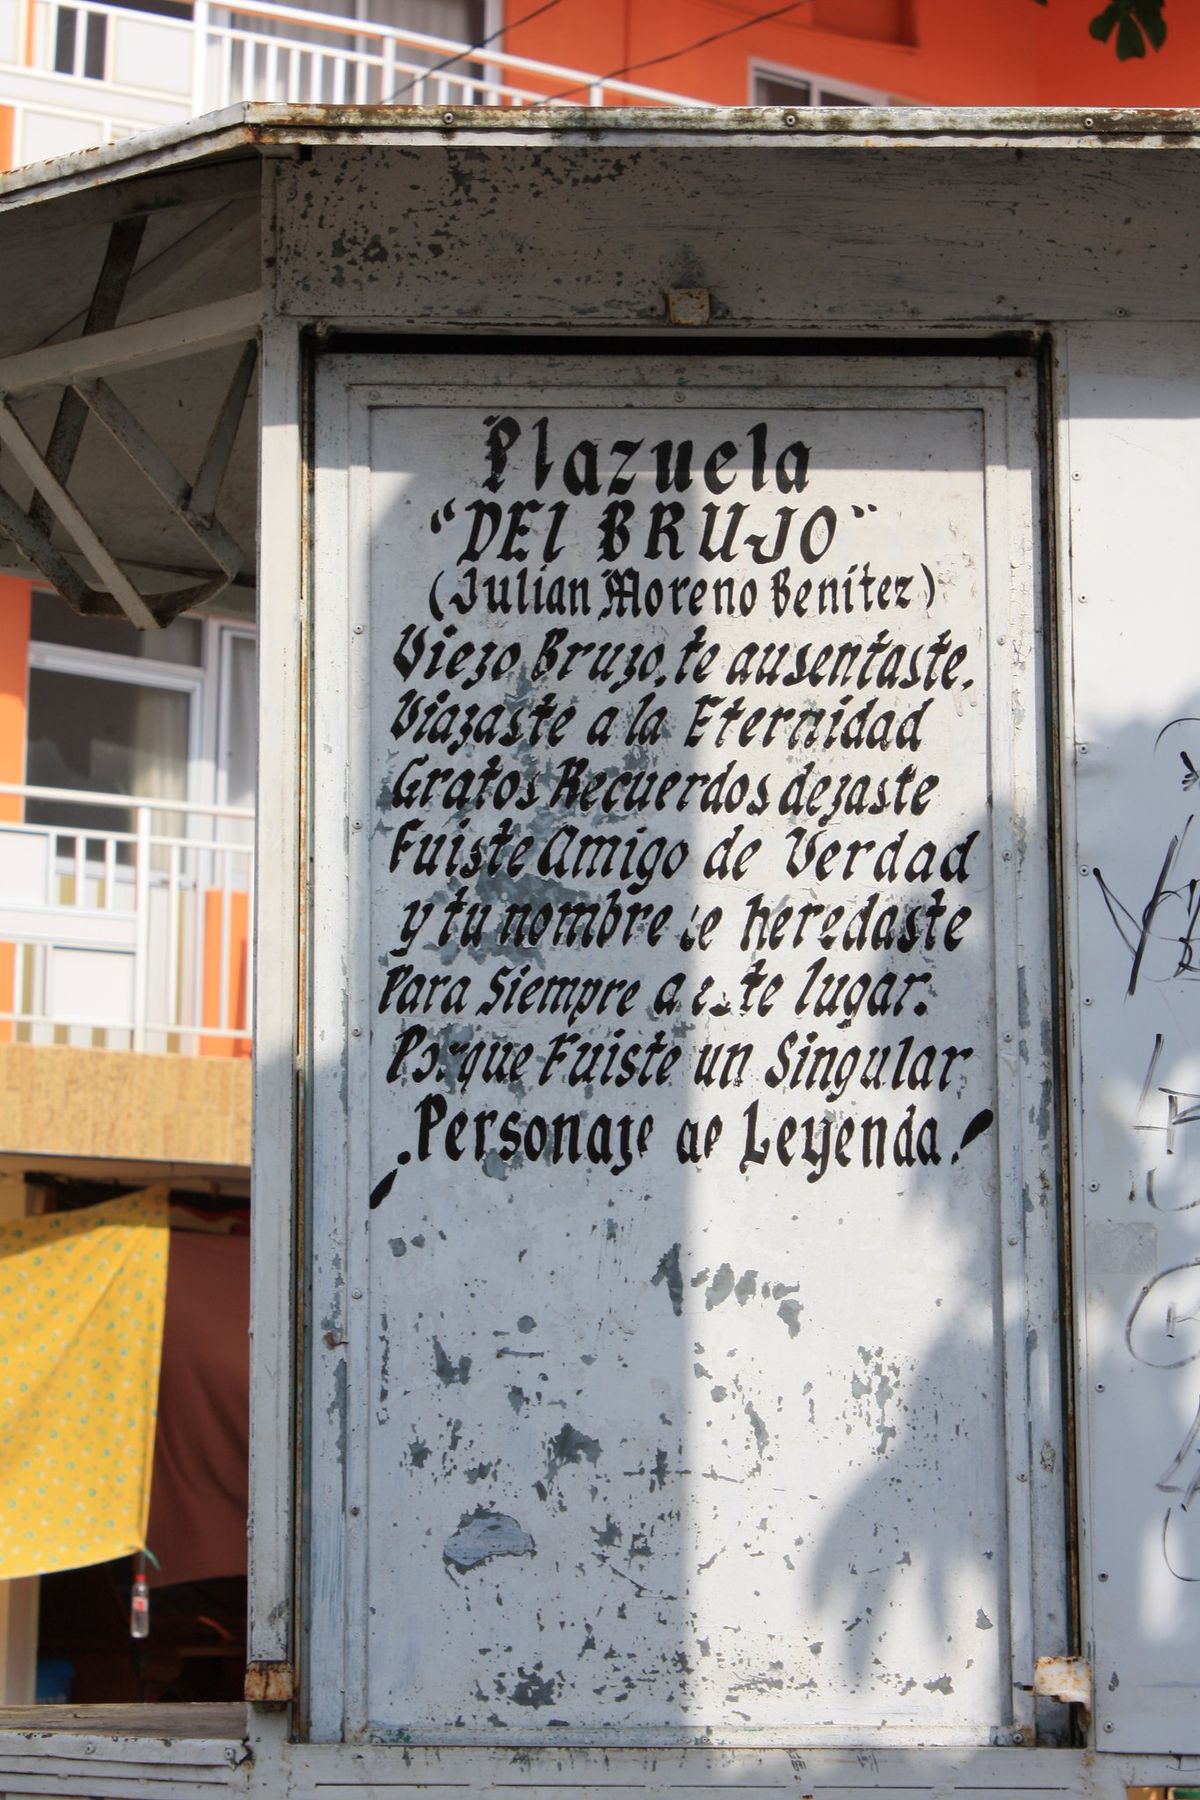 Plazuela
"DEl BRUJO"
(Julian Moreno Benitez)
Viejo Brujo, te ausentaste.
Viajaste a la Eternidad
Gratos Recuerdos dejaste
Fuiste Amigo de Verdad
y tu nombre le heredaste
Para Siempre a este lugar.
Porque Fuiste un Singular
¡Personaje de Leyenda!